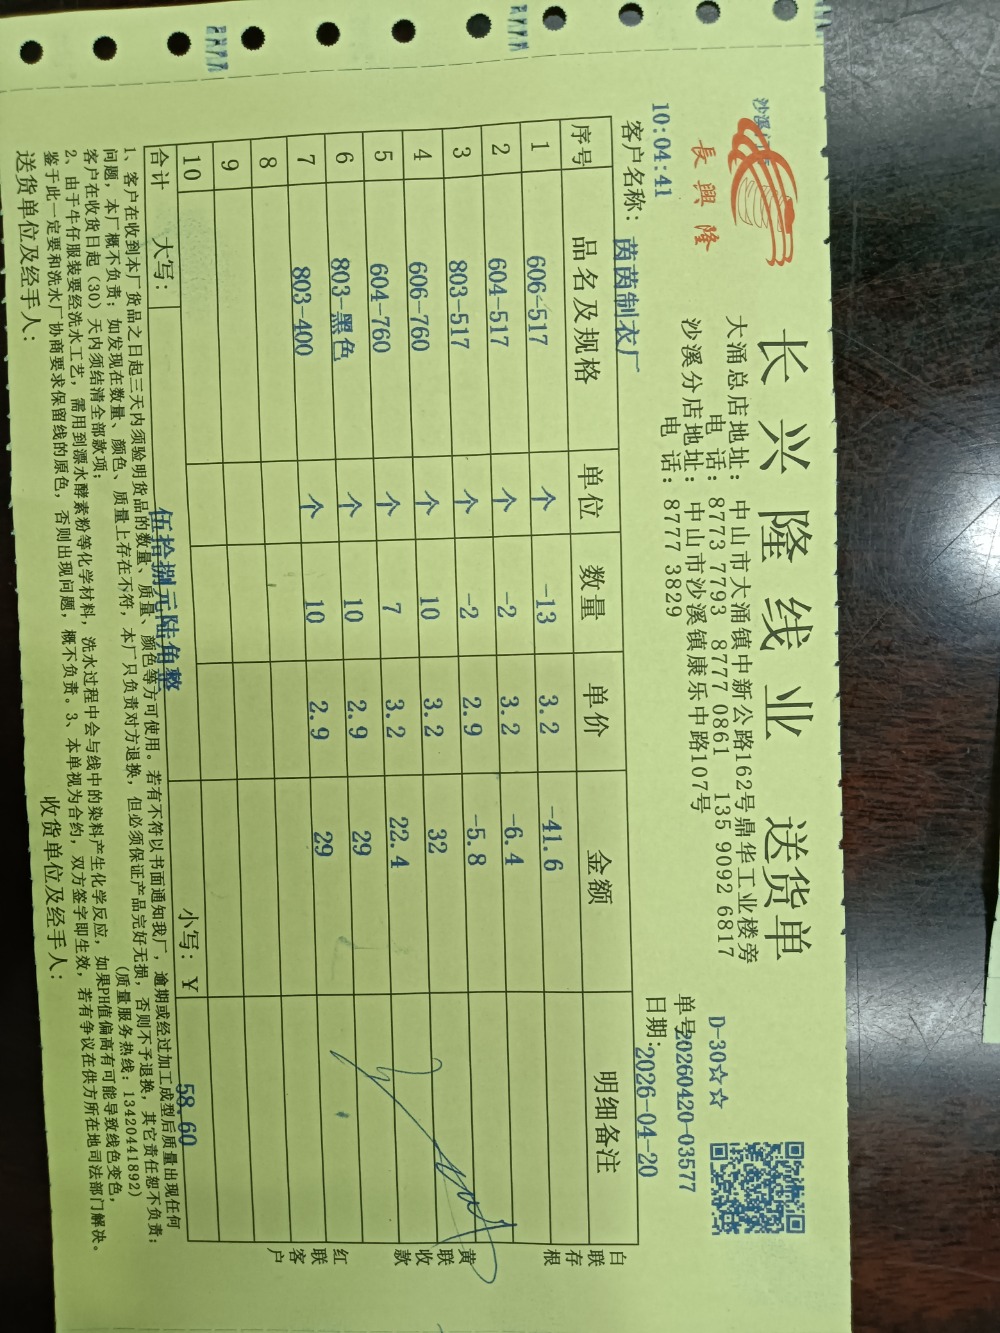 長興隆
长兴隆线业 送货单
D-30☆☆
大涌总店地址：中山市大涌镇中新公路162号鼎华工业楼旁
电 话：8773 7793 8777 0861 135 9092 6817
沙溪分店地址：中山市沙溪镇康乐中路107号
电 话：8777 3829
单号20260420-03577
10:04:41
日期：2026-04-20
客户名称：茵茵制衣厂
序号 品名及规格 单位 数量 单价 金额 明细备注
1 606-517 个 -13 3.2 -41.6
2 604-517 个 -2 3.2 -6.4
3 803-517 个 -2 2.9 -5.8
4 606-760 个 10 3.2 32
5 604-760 个 7 3.2 22.4
6 803-黑色 个 10 2.9 29
7 803-400 个 10 2.9 29
8
9
10
合计 大写：伍拾捌元陆角整 小写：Y 58.60
白联存根
黄联收款
红联客户
1、客户在收到本厂货品之日起三天内须验明货品的数量、质量、颜色等方可使用。若有不符以书面通知我厂，逾期或经过加工成型后质量出现任何
问题，本厂概不负责；如发现在数量、颜色、质量上存在不符，本厂只负责对方退换，但必须保证产品完好无损，否则不予退换，其它责任恕不负责；
客户在收货日起（30）天内须结清全部款项；（质量服务热线：13420441892）
2、由于牛仔服装要经洗水工艺，需用到漂水酵素粉等化学材料，洗水过程中会与线中的染料产生化学反应，如果PH值偏高有可能导致线色变色，
鉴于此一定要和洗水厂协商要求保留线的原色，否则出现问题，概不负责。3、本单视为合约，双方签字即生效，若有争议在供方所在地司法部门解决。
送货单位及经手人： 收货单位及经手人：